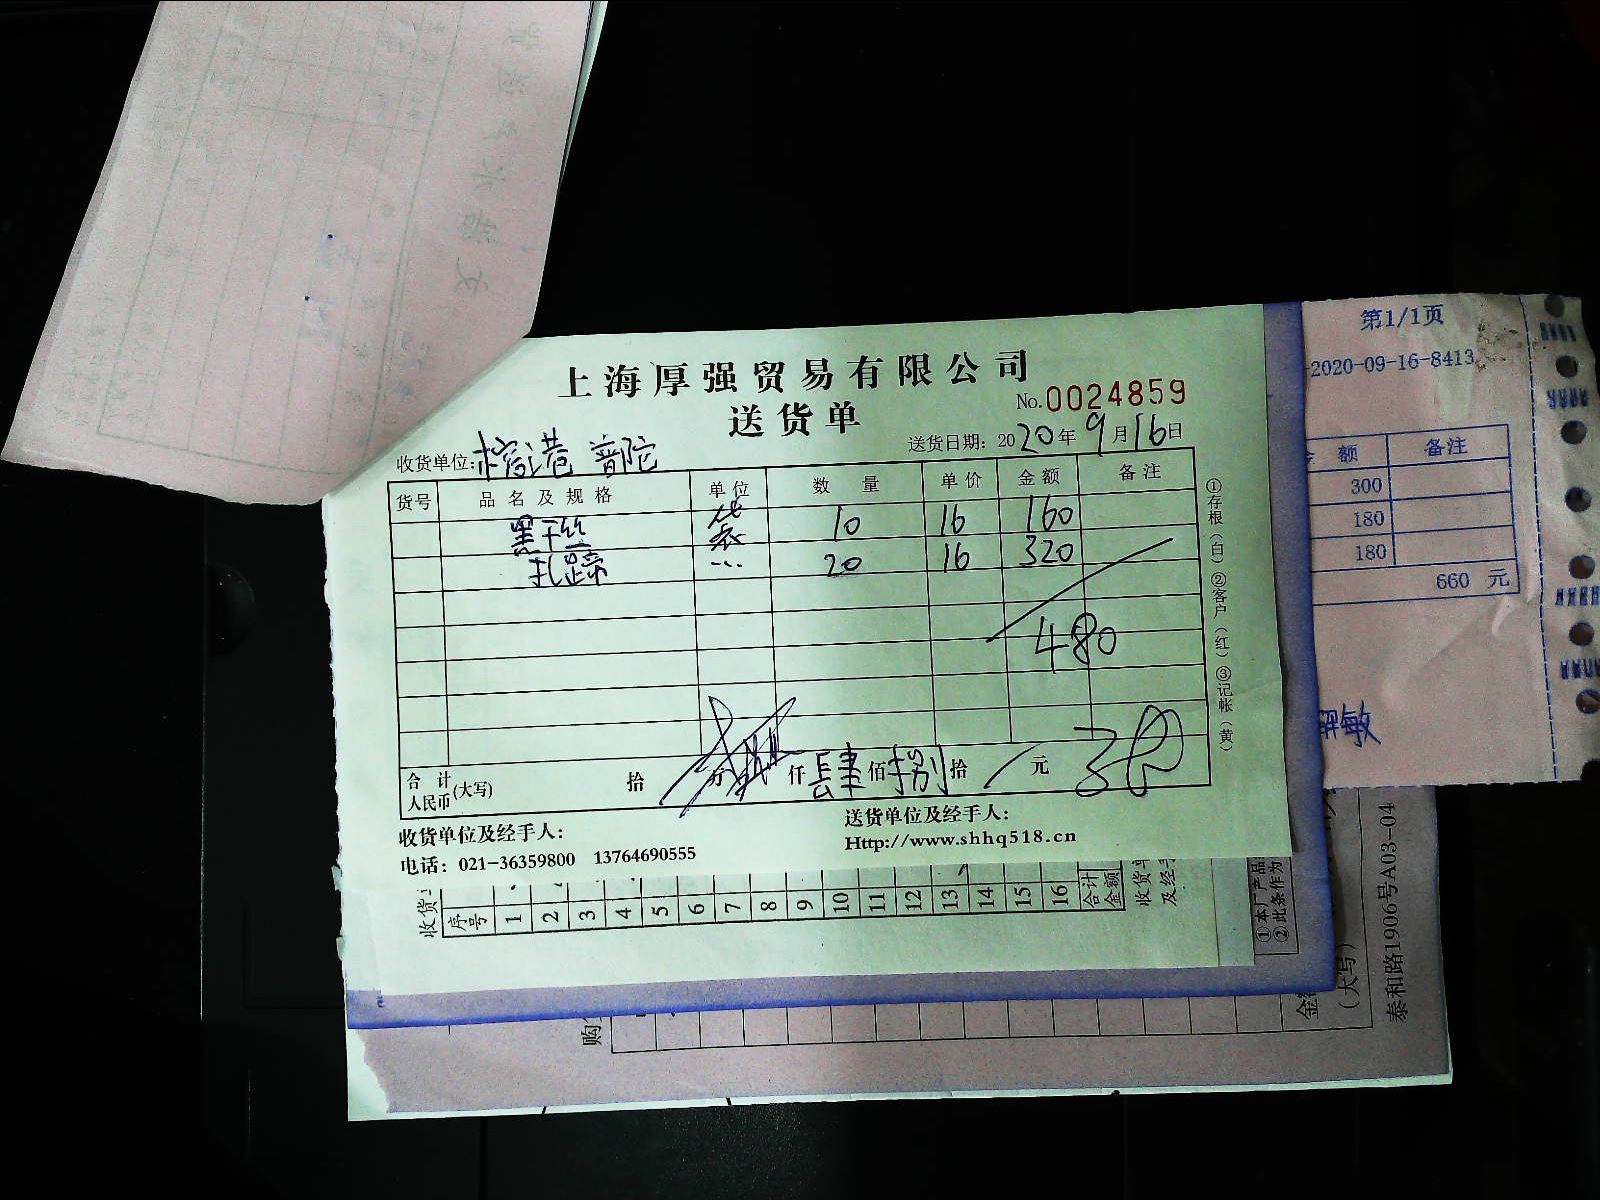 上海厚强贸易有限公司
No.0024859
送货单
收货单位: 港 普陀
送货日期: 2020年9月16日
货号 品名及规格 单位 数量 单价 金额 备注
黑千丝 袋 10 16 160
扎蹄 ... 20 16 320
480
合计人民币(大写) 拾 万 仟 肆 佰 捌 拾 元
收货单位及经手人:
送货单位及经手人:
电话: 021-36359800 13764690555
Http://www.shhq518.cn
①存根(白)②客户(红)③记帐(黄)
第1/1页
-2020-09-16-8413
额 备注
300
180
180
660 元
敏
收货
序号 1 2 3 4 5 6 7 8 9 10 11 12 13 14 15 16 合计金额
收货单
及经手
①本厂产品
②此条作为
购
金
(大写)
泰和路1906号A03-04